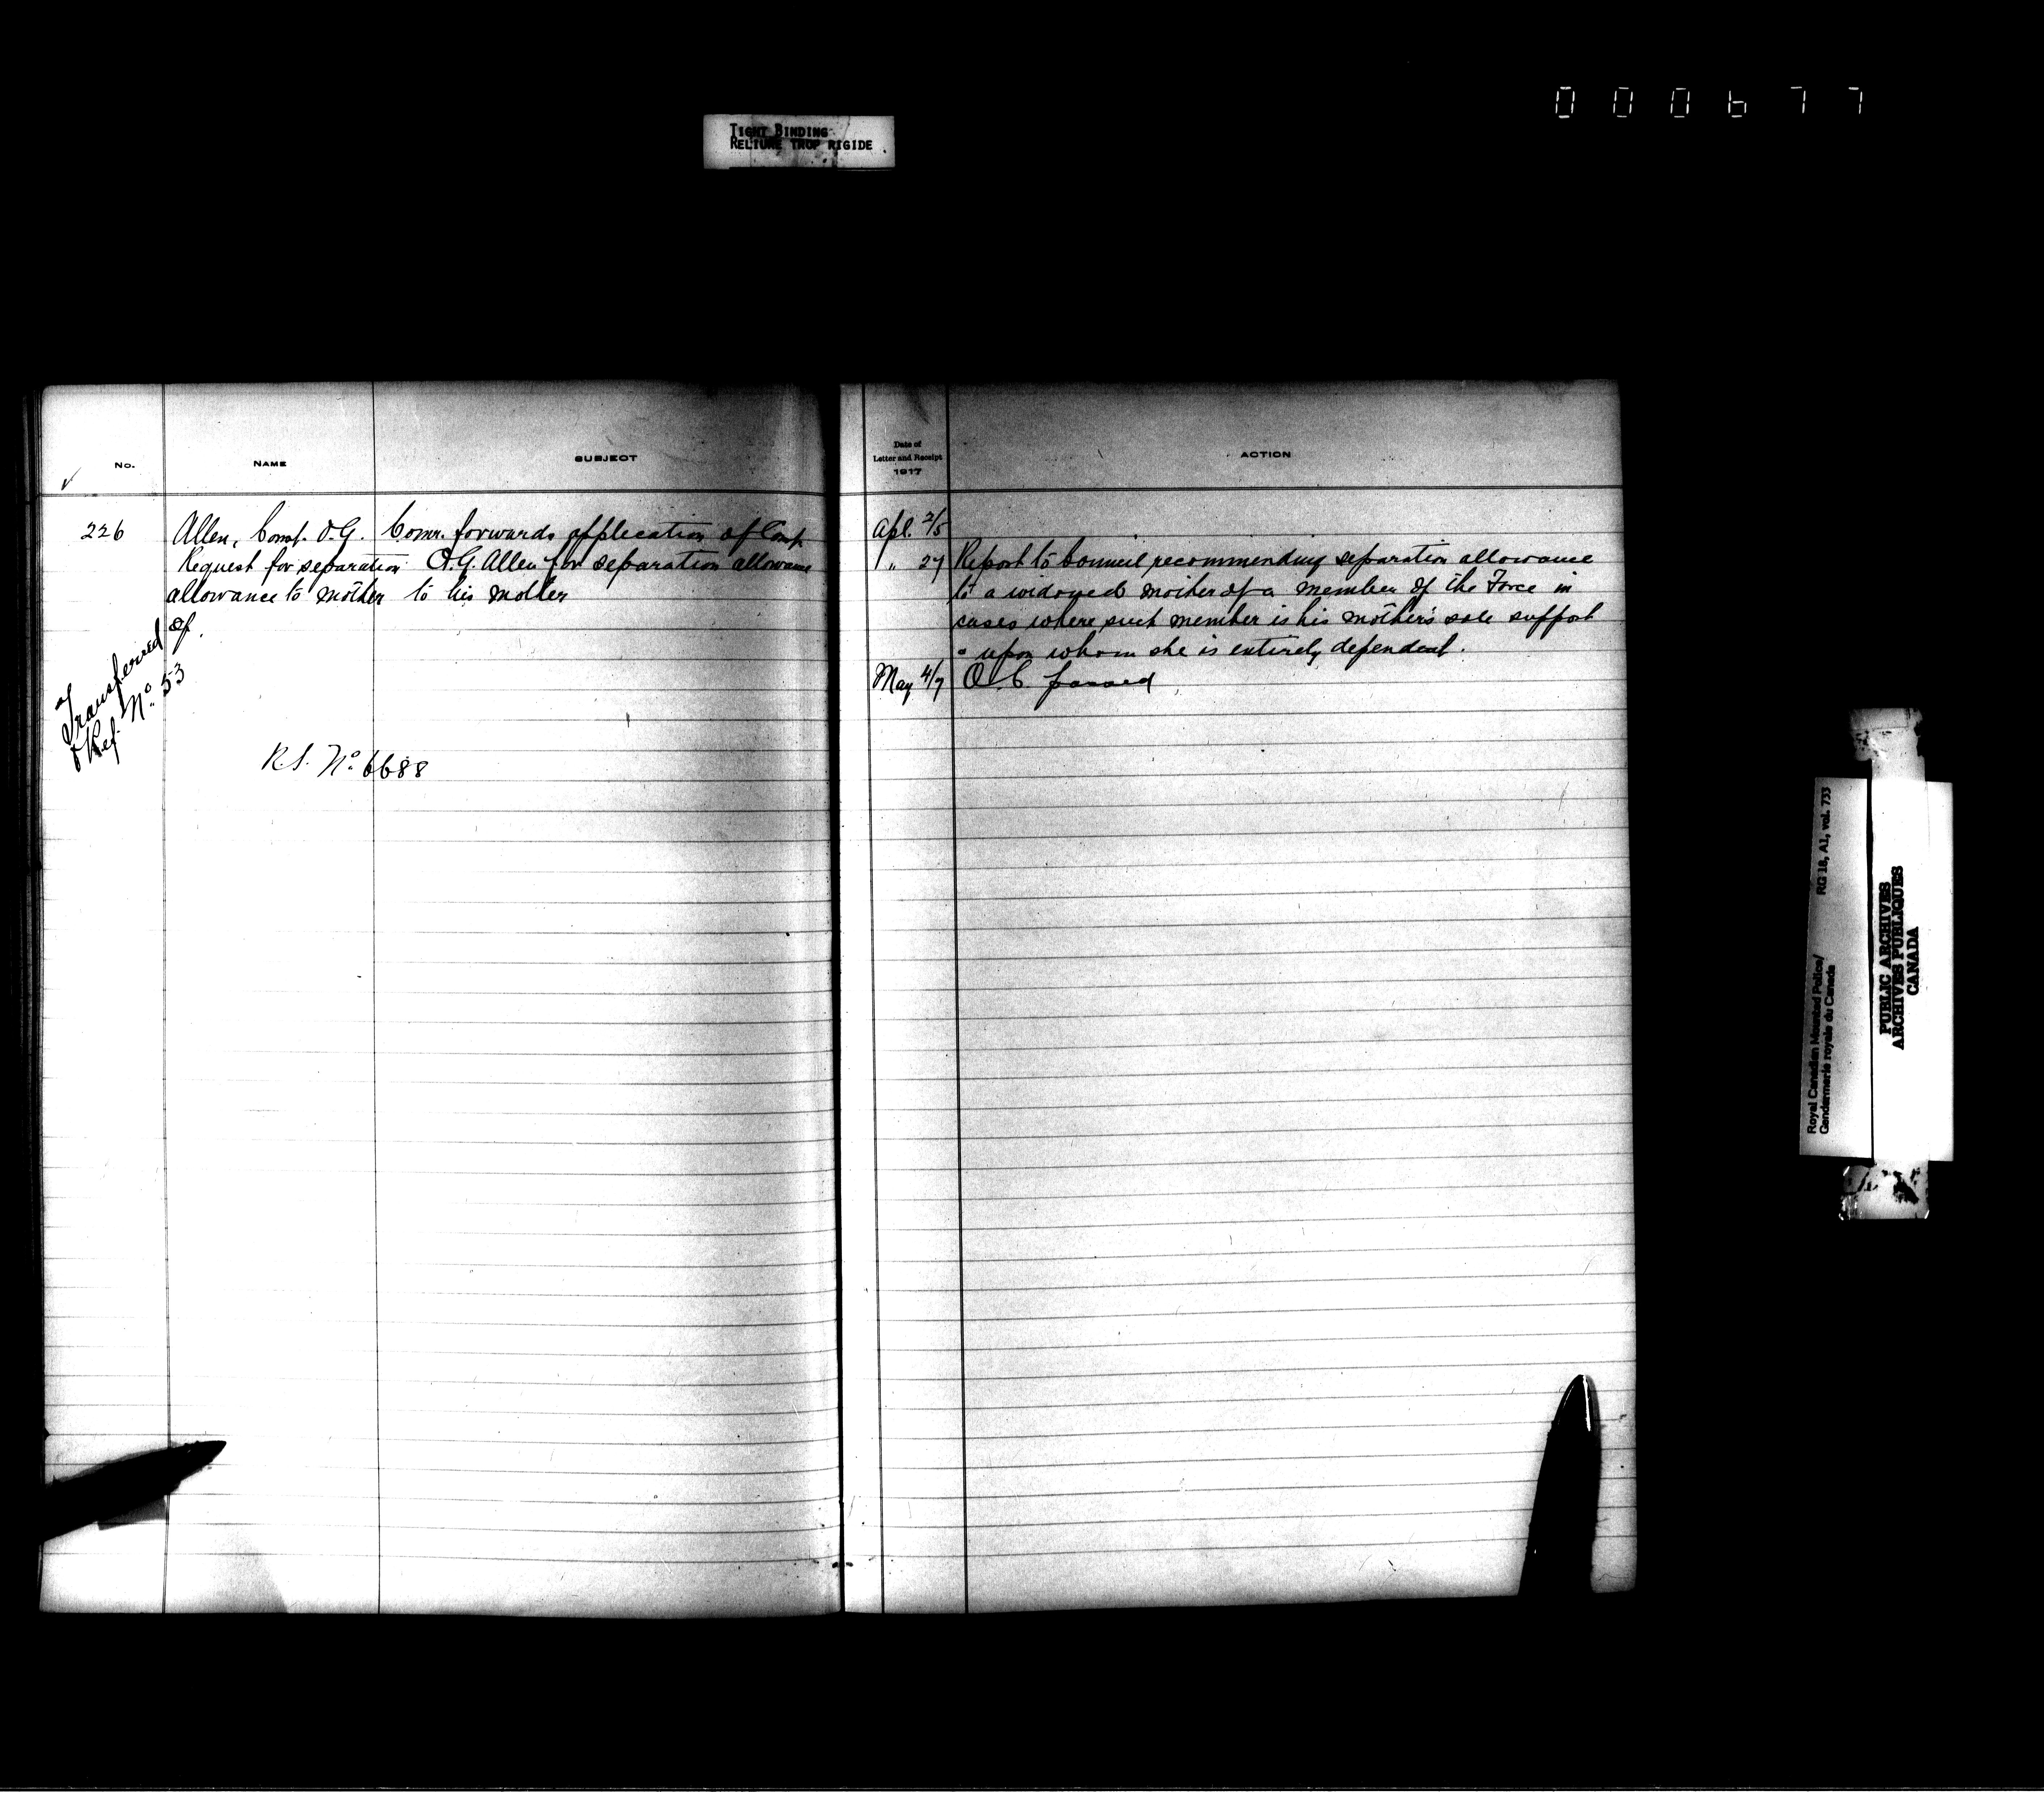 000677
TIGHT BINDING
RELIURE TROP RIGIDE
No.
NAME
SUBJECT
226
Allen, Const. O.G.
Request for separation
allowance to mother
of
Comr. forwards application of Const
O.G. Allen for separation allowance
to his mother
Transferred
Ref. No. 53
R.S. No. 6688
Date of
Letter and Receipt
1917
ACTION
Apl. 2/5
" 27 Report to Council recommending separation allowance
to a widowed mother of a member of the Force in
cases where such member is his mother's sole support
& upon whom she is entirely dependent.
May 4/7 O.C. passed
Royal Canadian Mounted Police/ RG 18, A1, vol. 733
Gendarmerie royale du Canada
PUBLIC ARCHIVES
ARCHIVES PUBLIQUES
CANADA